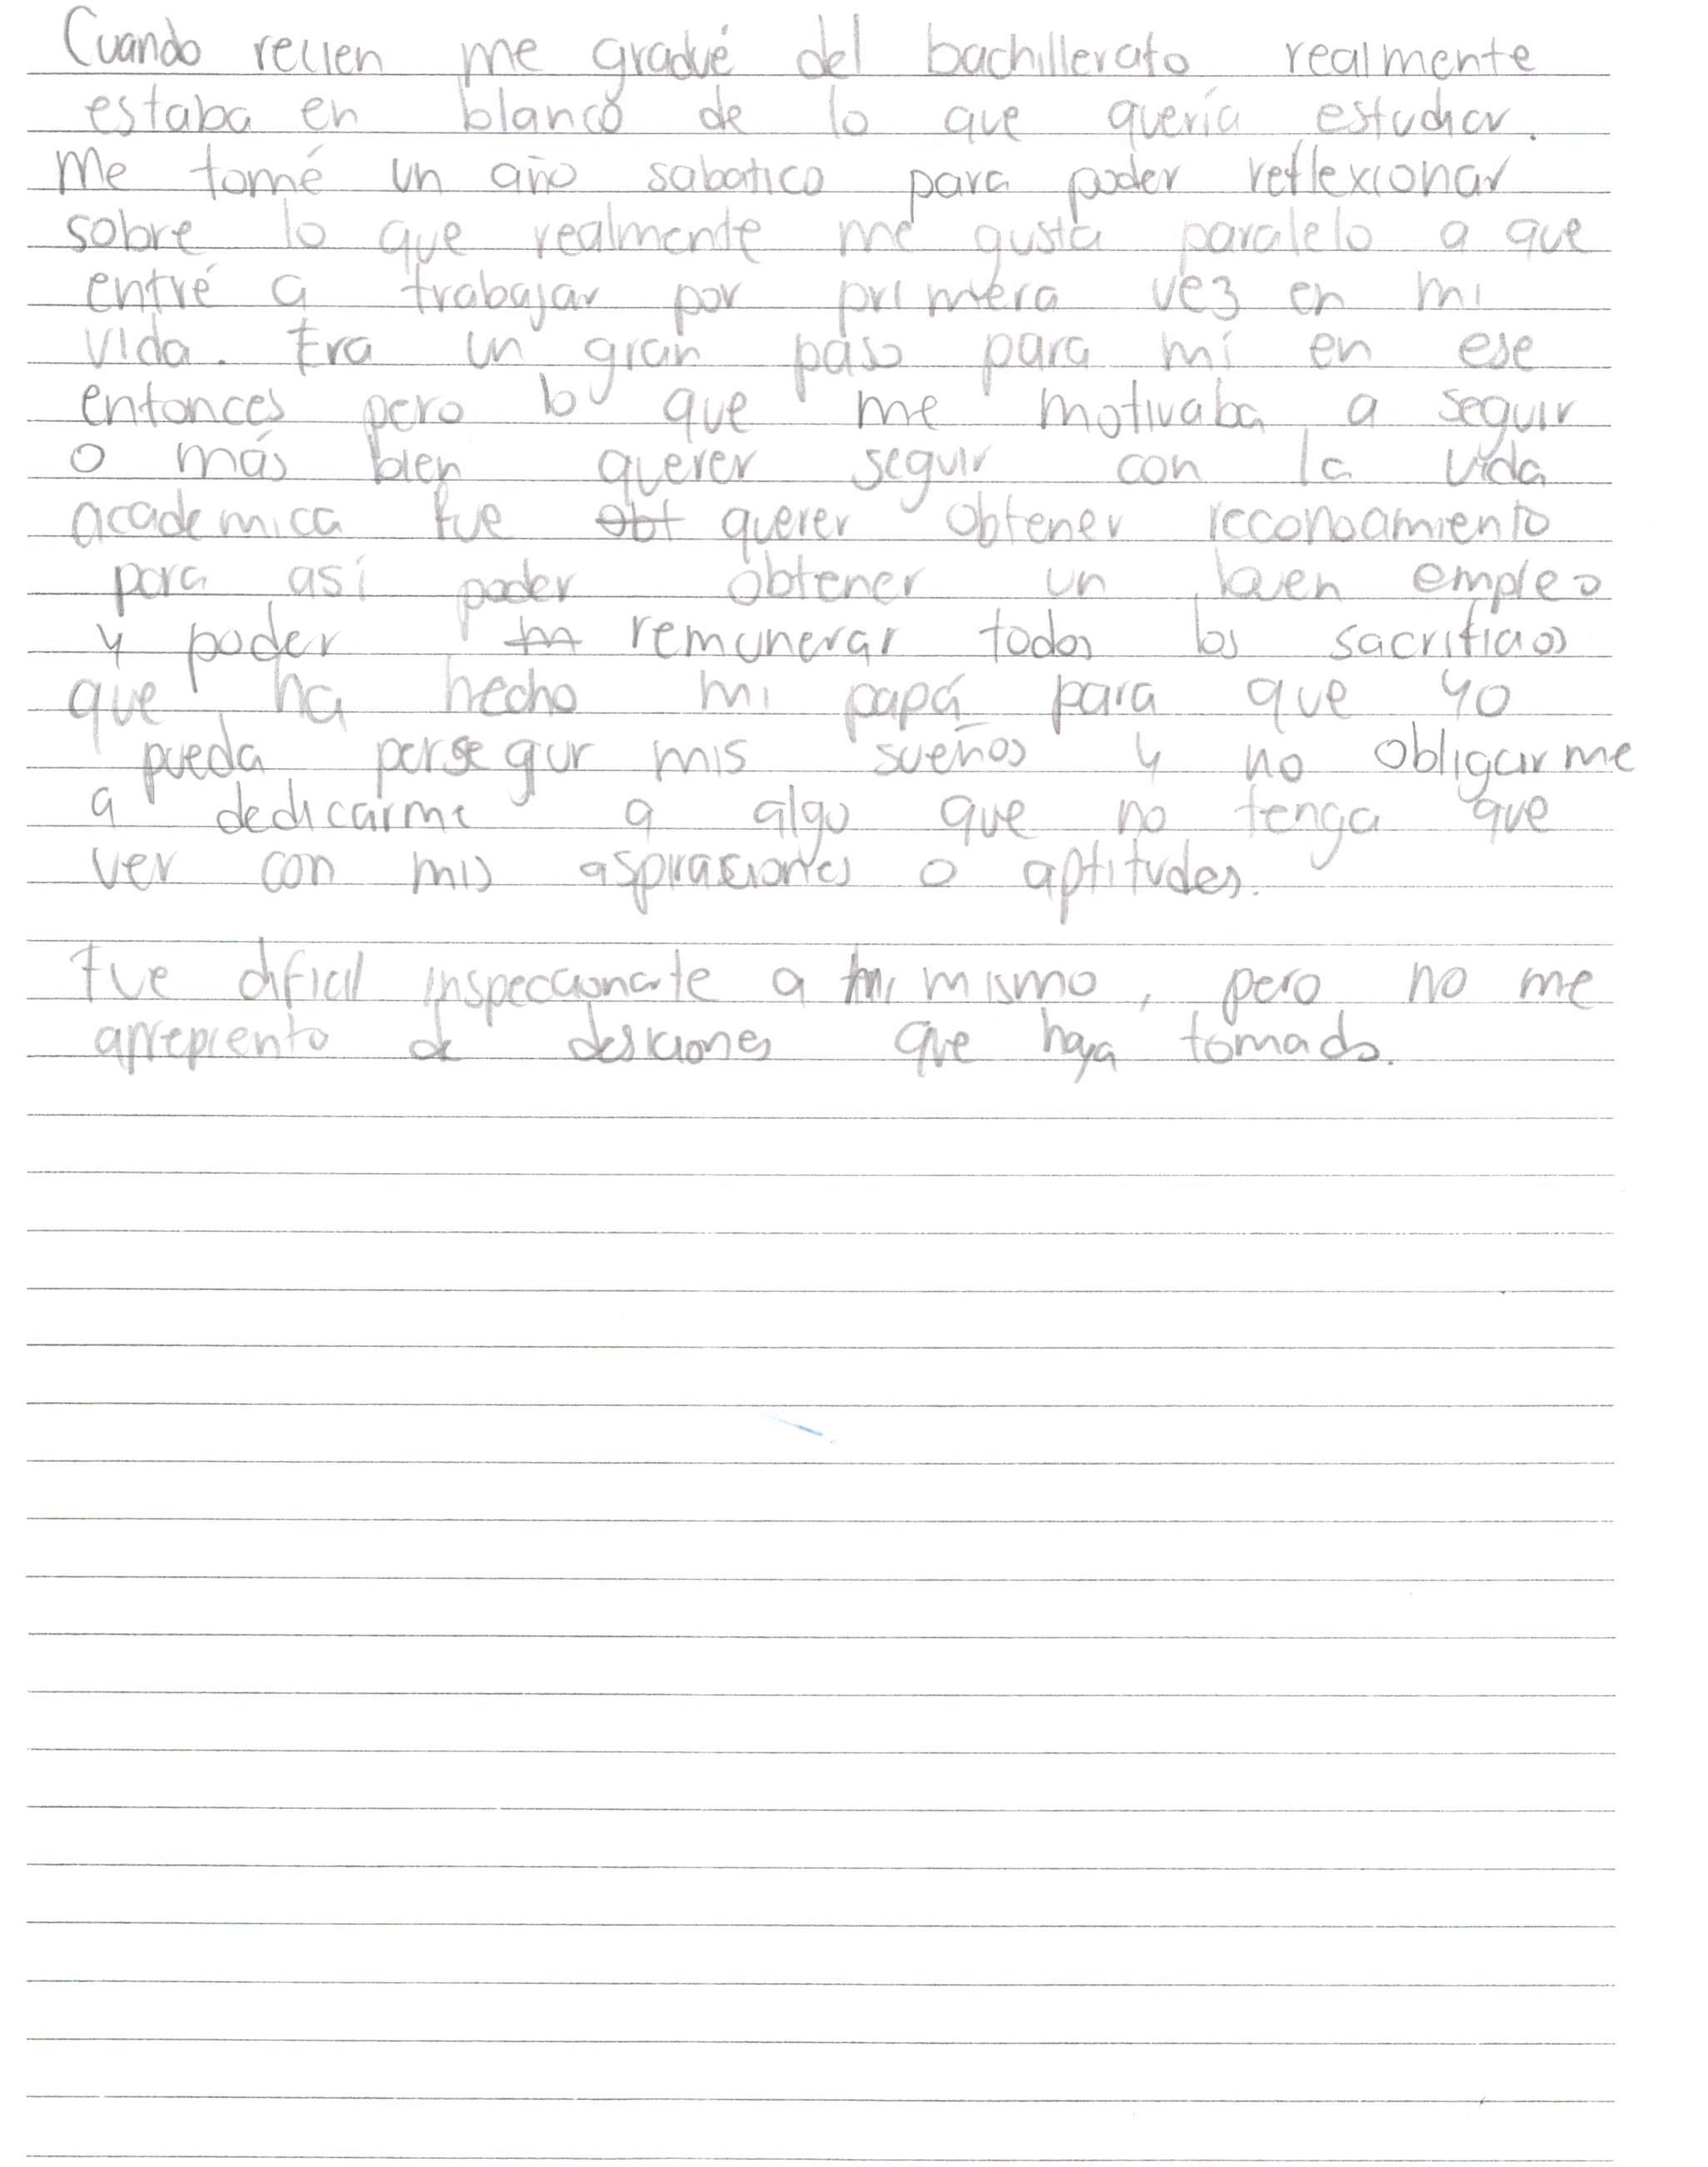 Cuando recien me gradué del bachillerato realmente
estaba en blanco de lo que quería estudiar.
Me tomé un año sabatico para poder reflexionar
sobre lo que realmente me gusta paralelo a que
entré a trabajar por primera vez en mi
vida. Era un gran paso para mí en ese
entonces pero lo que me motivaba a seguir
o más bien querer seguir con la vida
academica fue obt querer obtener reconocimiento
para así poder obtener un buen empleo
y poder m remunerar todos los sacrificios
que ha hecho mi papá para que yo
pueda persegur mis sueños y no obligarme
a dedicarme a algo que no tenga que
ver con mis aspiraciones o aptitudes.
Fue dificil inspeccionarte a mi mismo, pero no me
arrepiento de desiciones que haya tomado.